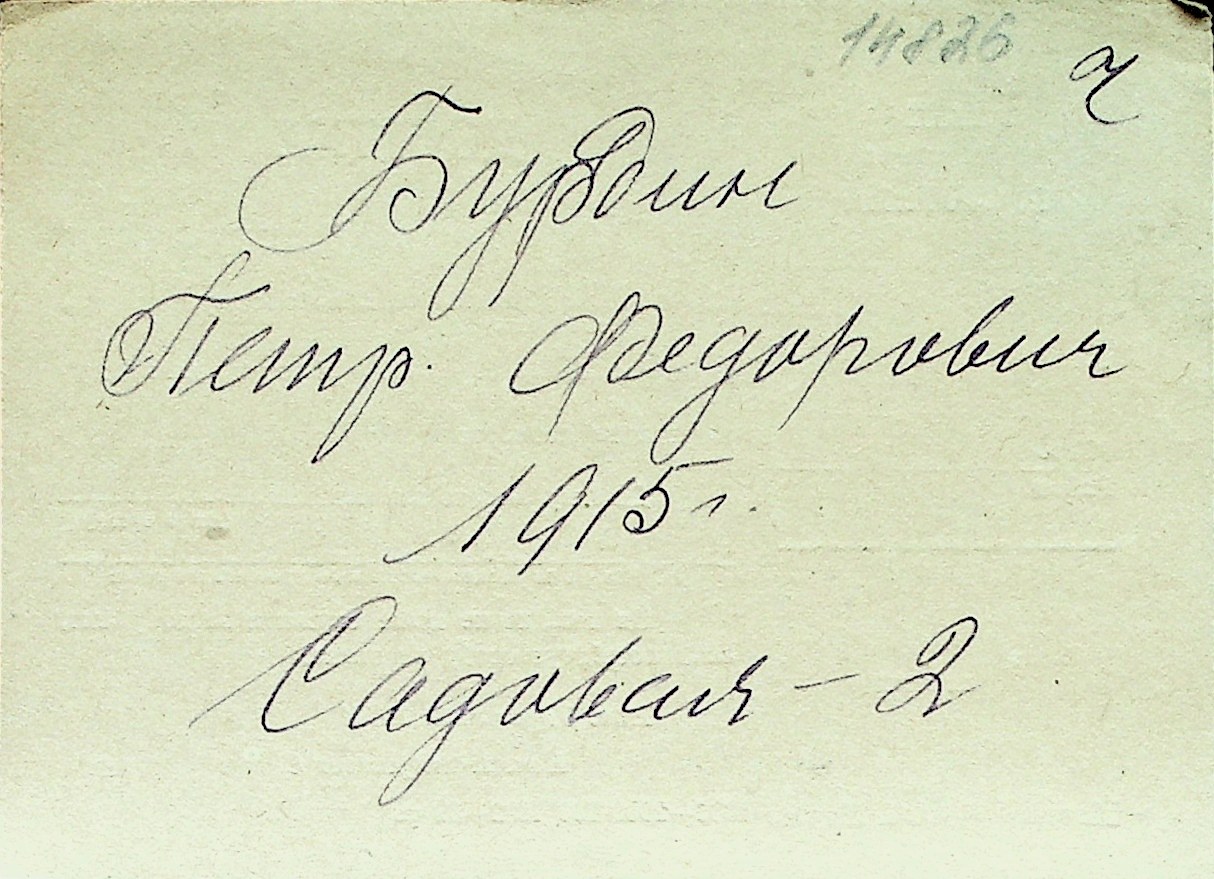 14826 ч
Бурдин
Петр. Федорович
1915 г.
Садовая - 2